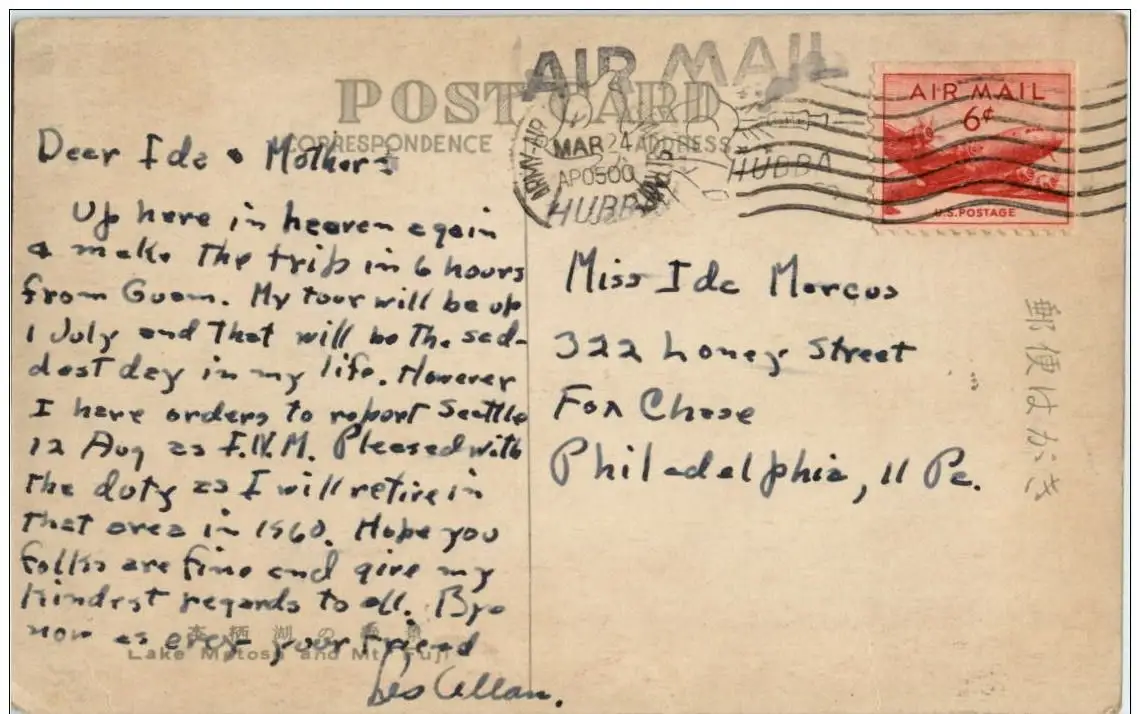 AIR MAIL
POST CARD
CORRESPONDENCE
ADDRESS
ARMY-AIR
MAR 24
APO500
HUBBA
HUBBA
AIR MAIL
6¢
U.S. POSTAGE
Dear Ida & Mother:
Up here in heaven again
& make the trip in 6 hours
from Guam. My tour will be up
1 July and that will be the sad-
dest day in my life. However
I have orders to report Seattle
12 Aug as
Pleased with
the duty as I will retire in
that area in 1960. Hope you
folks are fine and give my
kindest regards to all. Bye
now as ever your friend
Les Allan.
Miss Ida Marcus
322 Loney Street
Fox Chase
Philadelphia, 11 Pa.
郵便はがき
栖湖の
Lake Motosu and Mt. Fuji